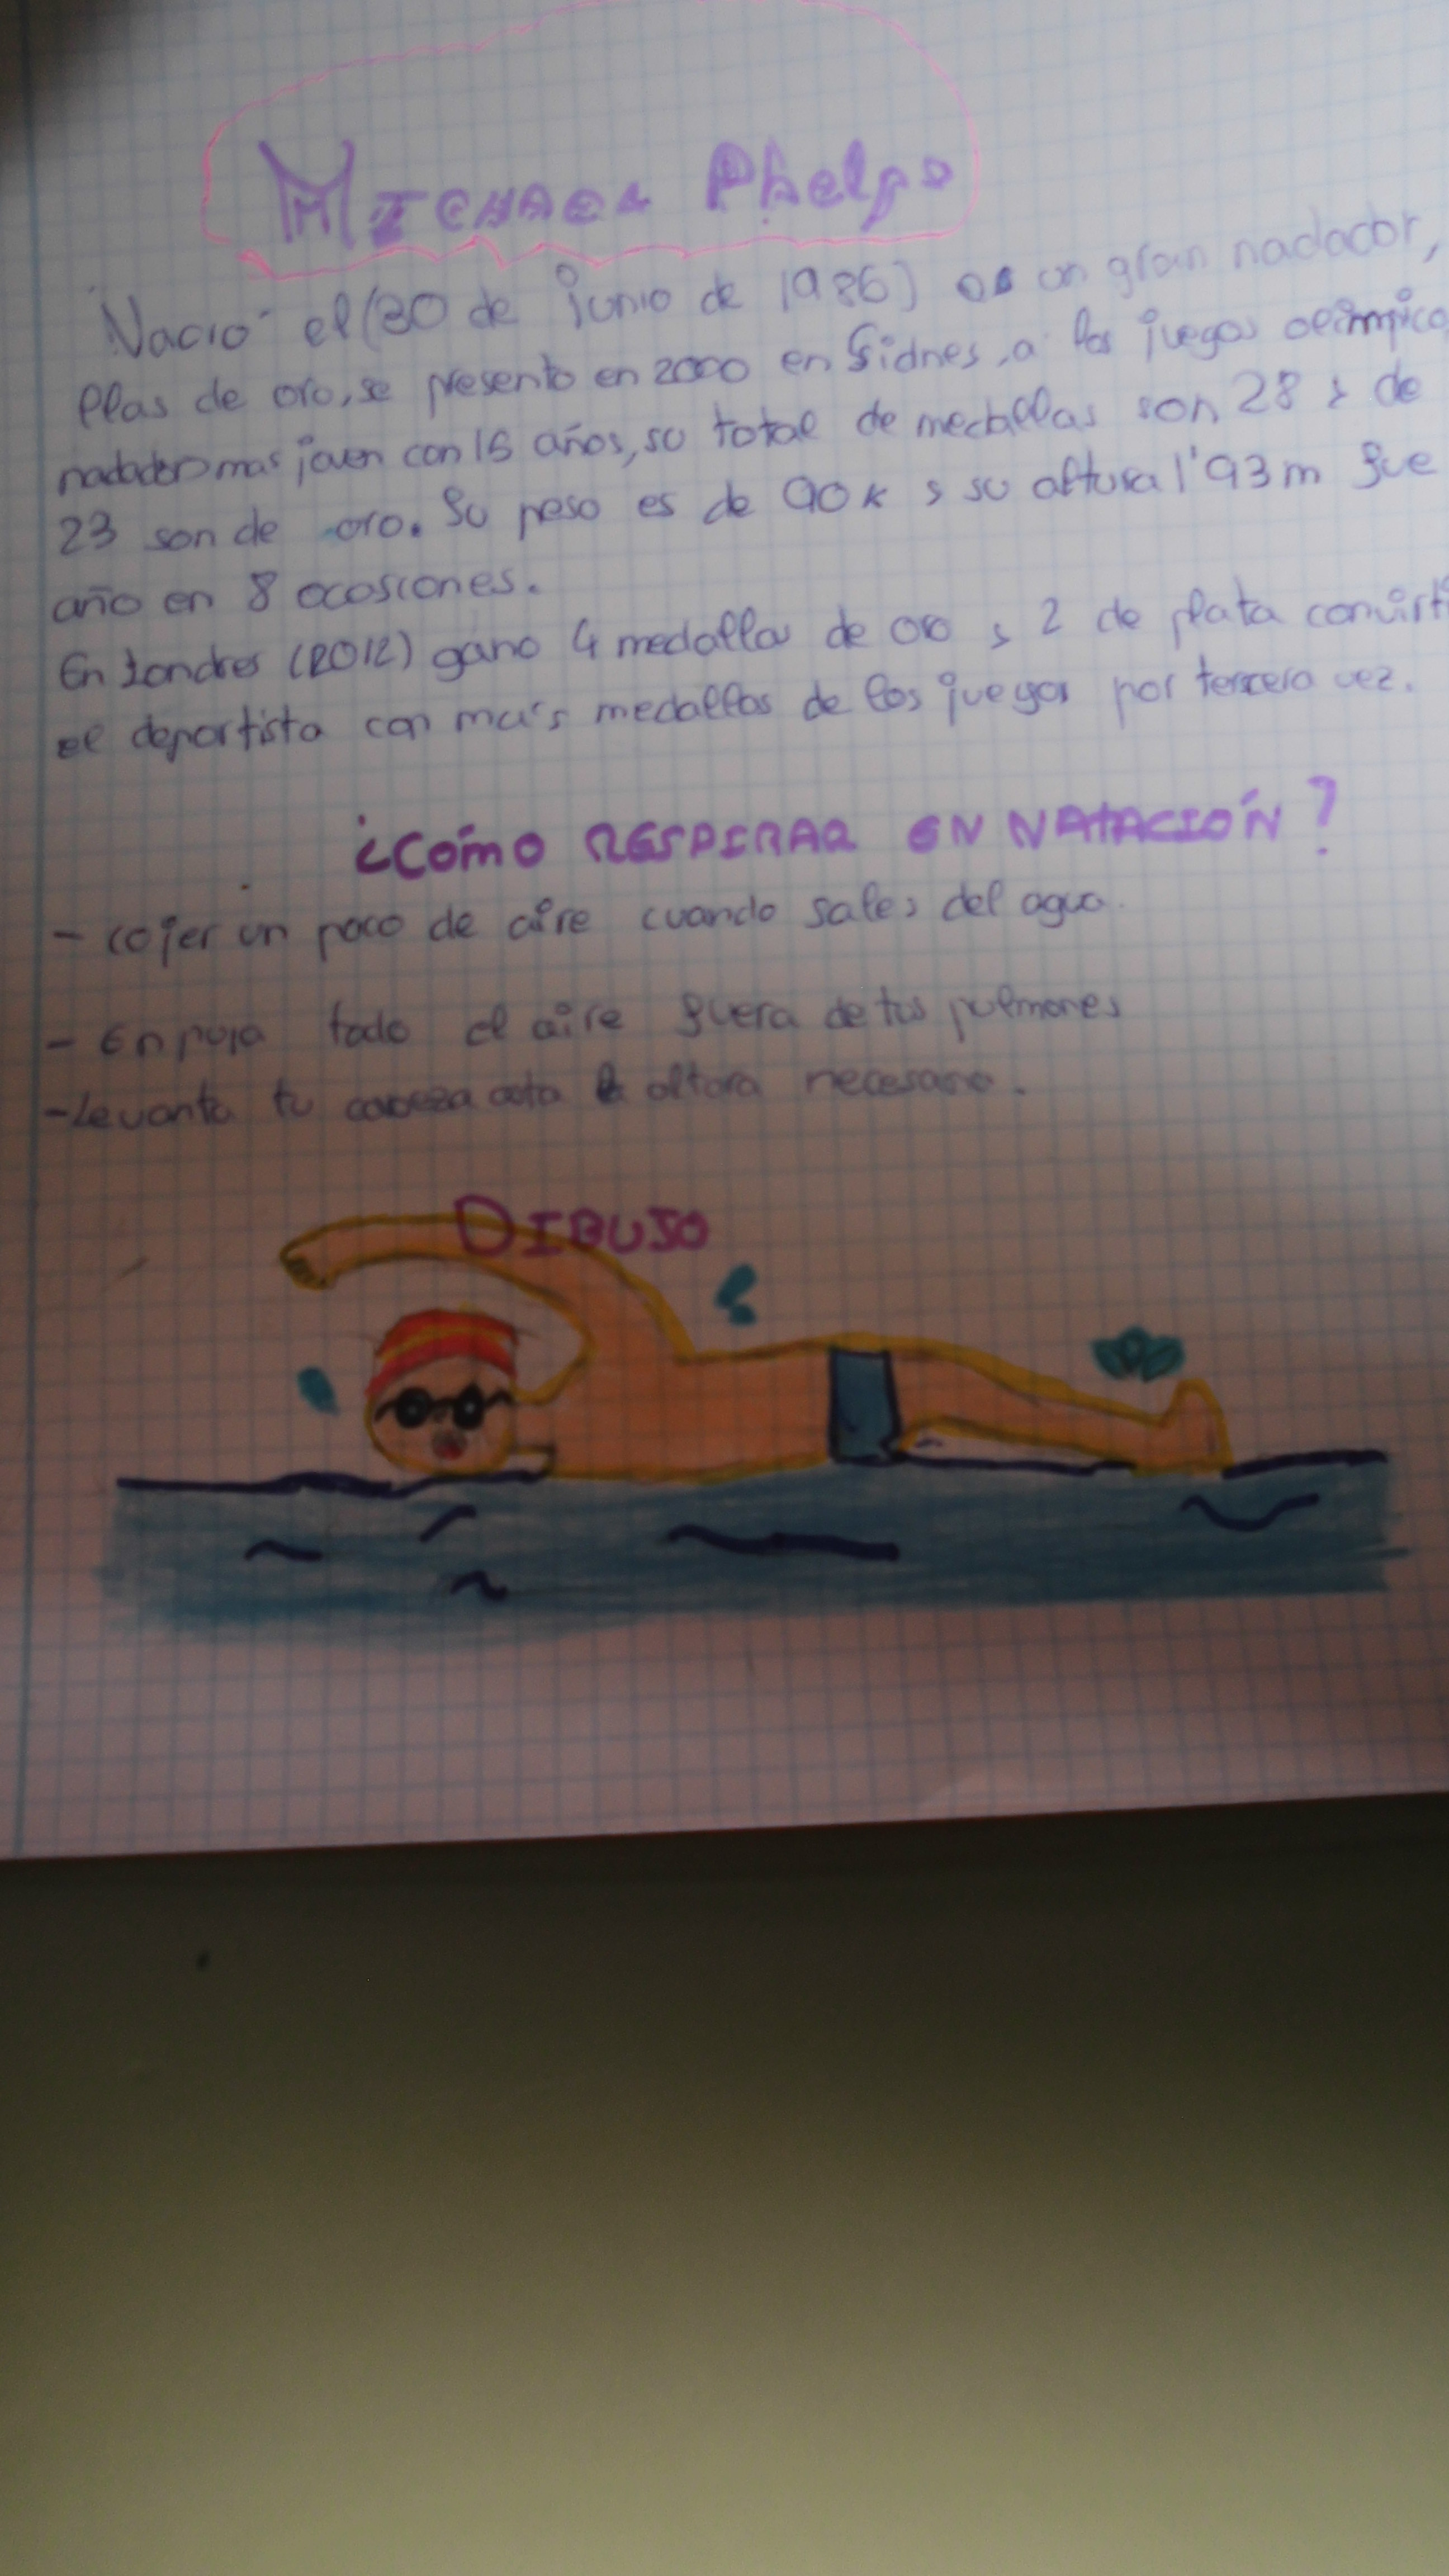 MICHAEL Phelps
Nació el (30 de junio de 1986) es un gran nadador,
llas de oro, se presento en 2000 en Sidnes, a los juegos olimpico
nadador mas joven con 15 años, su total de medallas son 28 y de
23 son de oro. Su peso es de 90 K y su altura 1'93 m fue
año en 8 ocosiones.
En Londres (2012) gano 4 medallas de oro y 2 de plata convirti
el deportista con más medallas de los juegos por tercera vez.
¿CÓMO RESPIRAR EN NATACIÓN?
- cojer un poco de aire cuando sales del agua.
- Enpuja todo el aire fuera de tus pulmones
- Levanta tu cabeza asta la altura necesaria.
DIBUJO